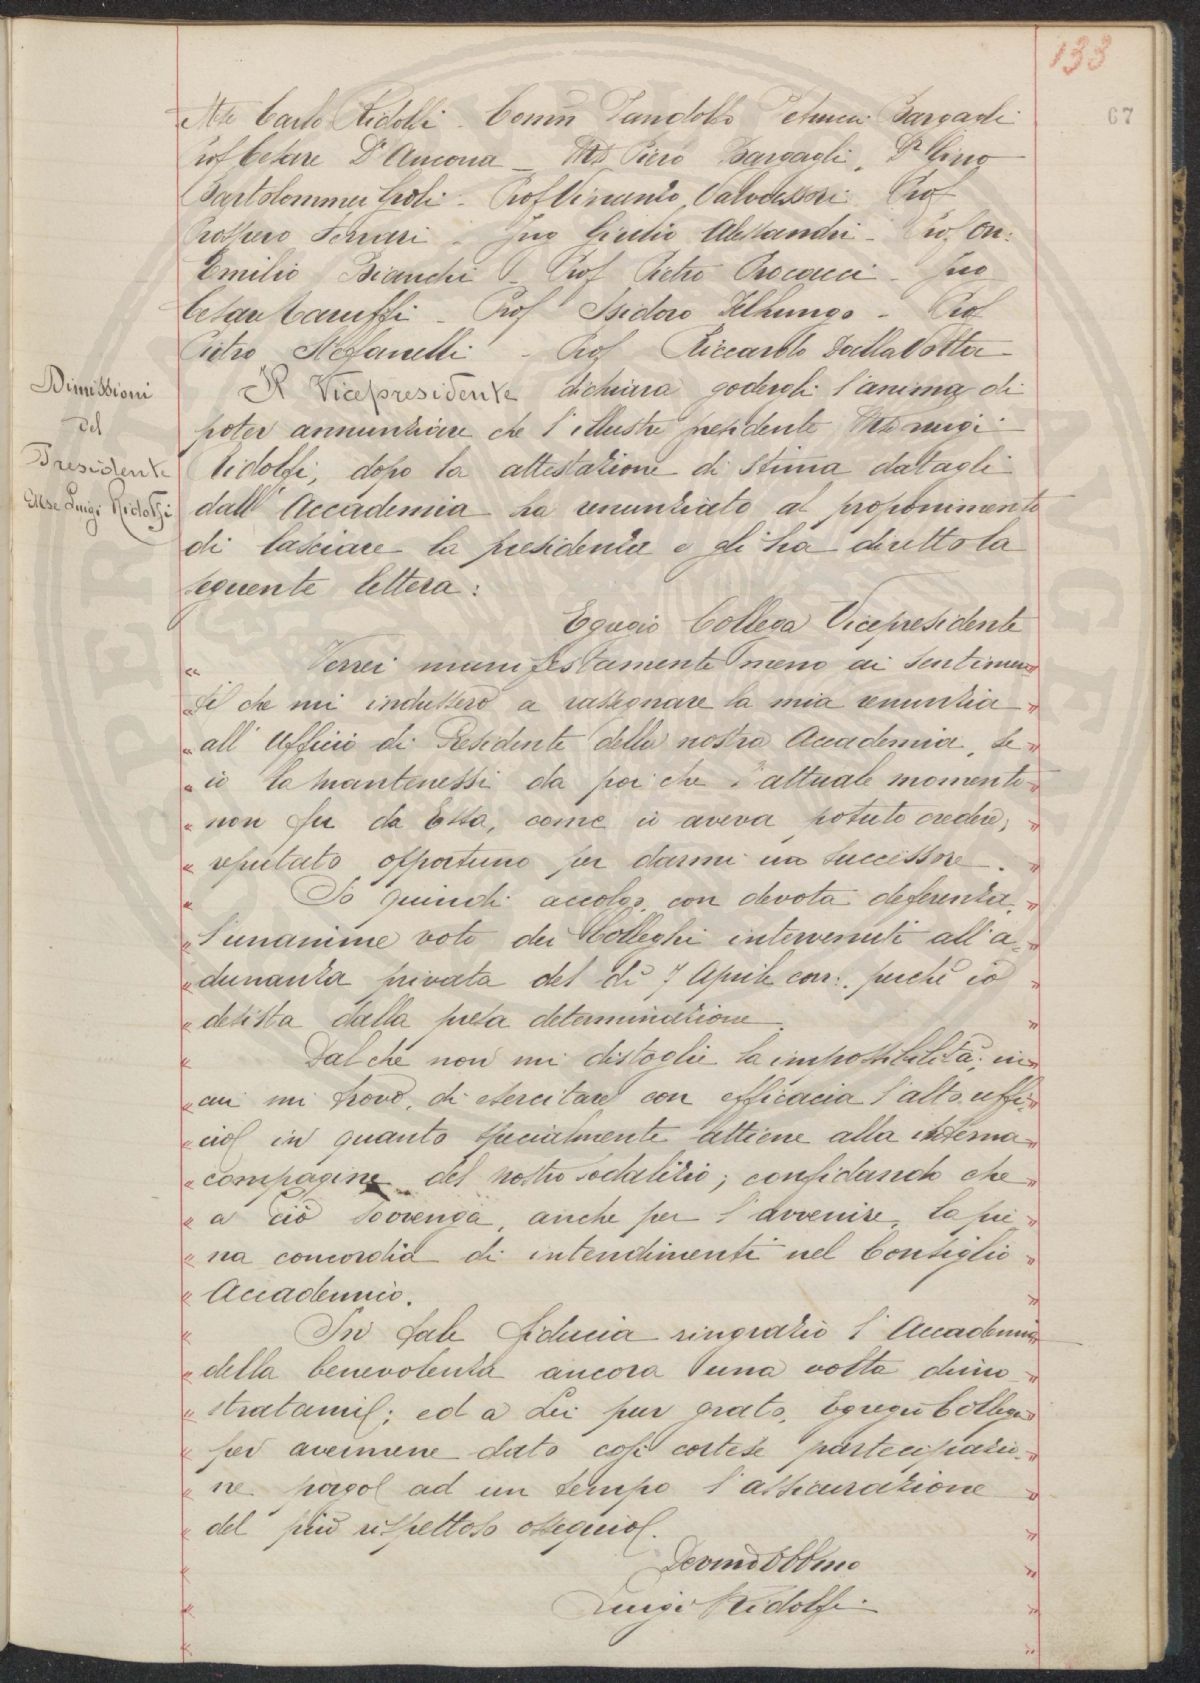 133
67
Mse Carlo Ridolfi - Comm Pandolfo Petrucci Bargagli
Prof Cesare D'Ancona - Mse Piero Bargagli, Dr Gino
Bartolommei Gioli - Prof Vincenzo Valvassori Prof
Prospero Ferrari - Ing Giulio Alessandri - Prof On:
Emilio Bianchi - Prof Pietro Procacci - Ing
Cesare Caruffi - Prof Isidoro Del Lungo - Prof
Pietro Stefanelli - Prof Riccardo Dalla Volta
Dimissioni
del
Presidente
Mse Luigi Ridolfi
Il Vicepresidente dichiara godergli l'anima di
poter annunziare che l'illustre presidente Mse Luigi
Ridolfi, dopo la attestazione di stima datagli
dall'Accademia ha renunziato al proponimento
di lasciare la presidenza e gli ha diretto la
seguente lettera:
Egregio Collega Vicepresidente
" Verrei manifestamente meno ai sentimen "
" ti che mi indussero a rassegnare la mia renunzia "
" all'Ufficio di Presidente della nostra Accademia, se "
" io la mantenessi da poi che l'attuale momento "
" non fu da Essa, come io aveva potuto credere, "
" reputato opportuno per darmi un successore. "
" Io quindi accolgo, con devota deferenza, "
" l'unanime voto dei Colleghi intervenuti all'a- "
" dunanza privata del dì 7 Aprile corr:, perchè io "
" desista dalla presa determinazione. "
" Dal che non mi distoglie la impossibilità, in "
" cui mi trovo, di esercitare con efficacia l'alto uffi- "
" cio in quanto specialmente attiene alla interna "
" compagine del nostro sodalizio; confidando che "
" a ciò sovvenga, anche per l'avvenire, la pie "
" na concordia di intendimenti nel Consiglio "
" Accademico. "
" In tale fiducia ringrazio l'Accademia "
" della benevolenza ancora una volta dimo- "
" stratami; ed a Lei pur grato, Egregio Collega "
" per avermene dato così cortese partecipazio- "
" ne porgo ad un tempo l'assicurazione "
" del più rispettoso ossequio. "
" Devmo Obbmo "
" Luigi Ridolfi. "